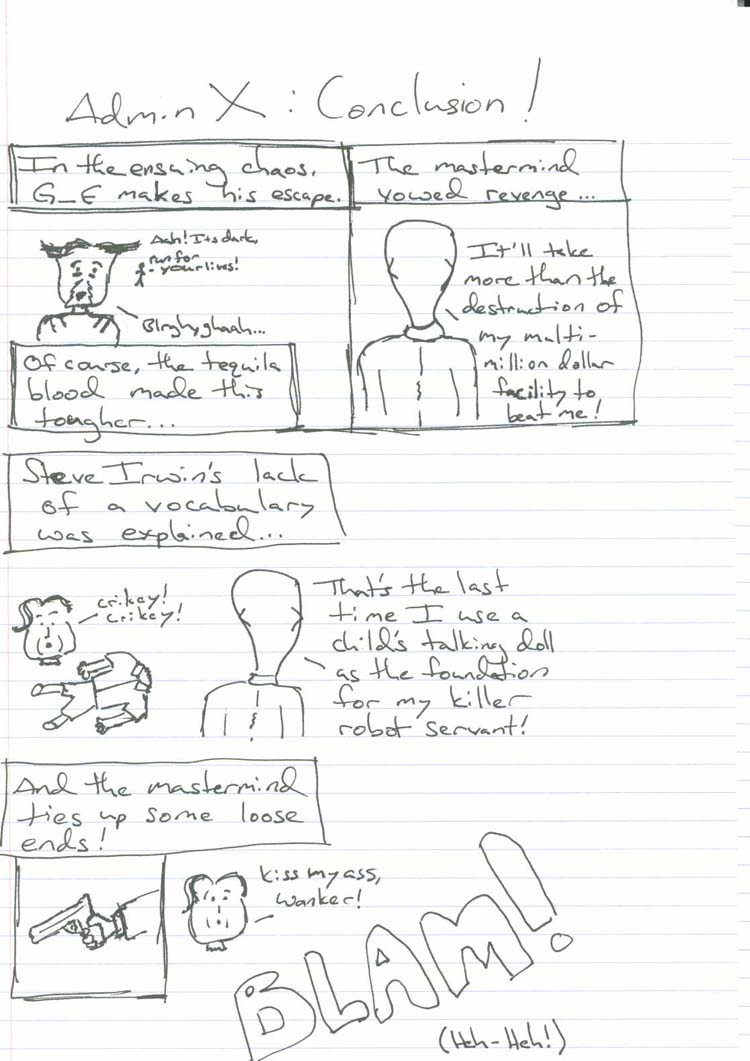 Admin X: Conclusion!
In the ensuing chaos,
G_E makes his escape.
Aah! Its dark,
run for
your lives!
Blrghyghaah...
Of course, the tequila
blood made this
tougher...
The mastermind
vowed revenge...
It'll take
more than the
destruction of
my multi-
million dollar
facility to
beat me!
Steve Irwin's lack
of a vocabulary
was explained...
crikey!
crikey!
That's the last
time I use a
child's talking doll
as the foundation
for my killer
robot servant!
And the mastermind
ties up some loose
ends!
kiss my ass,
wanker!
BLAM!
(Heh-Heh!)